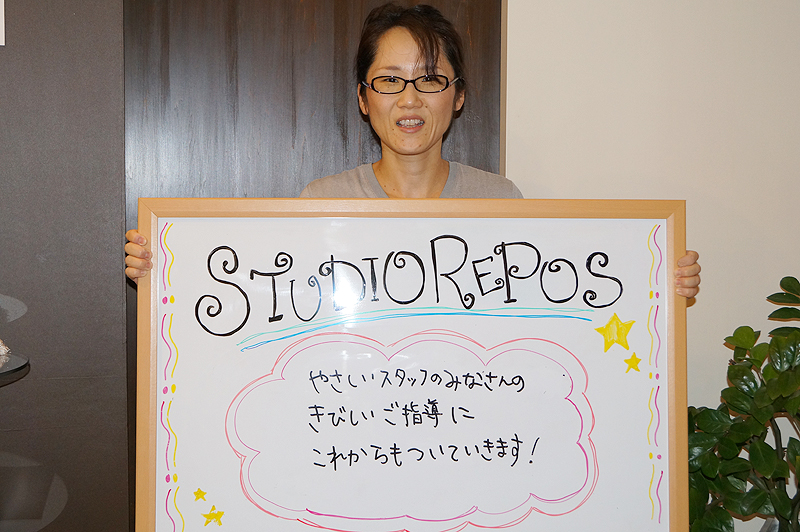 STUDIO REPOS
やさしいスタッフのみなさんの
きびしいご指導に
これからもついていきます!